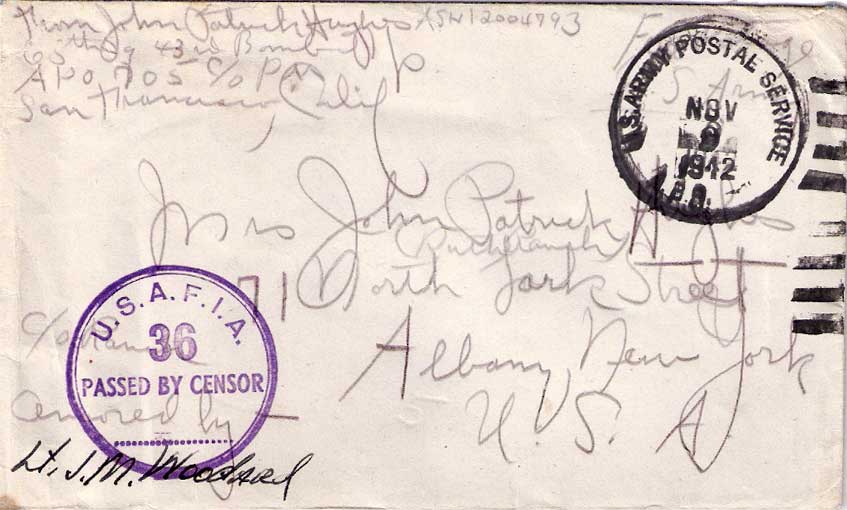 From John Patrick Hughes ASN 12004793
65th Sq 43rd Bomb
APO 705 C/O P.M.
San Francisco, Calif
Free
U.S. Army
U.S. ARMY POSTAL SERVICE
NOV
9
1942
A.P.O.
Mrs John Patrick Hughes
71 North Lark Street
Albany, New York
U. S. A
U.S.A.F.I.A.
36
PASSED BY CENSOR
C/O
Censored by —
Lt. J.M. Woodard